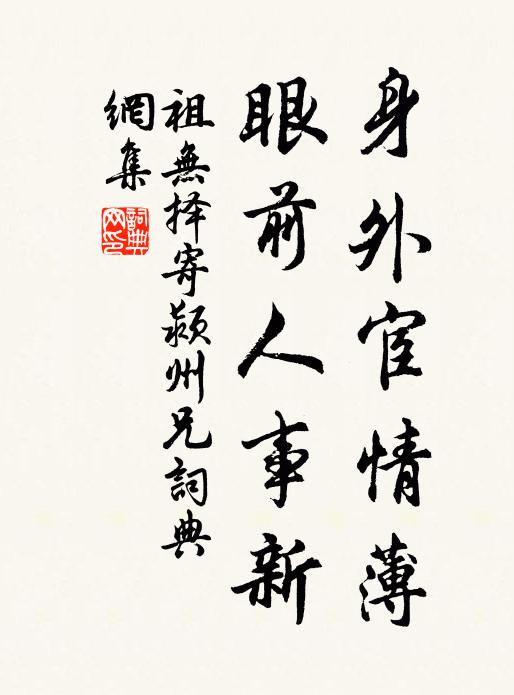 身外宦情薄
眼前人事新
祖無择寄颍州兄詞典
網集
詞典
网印